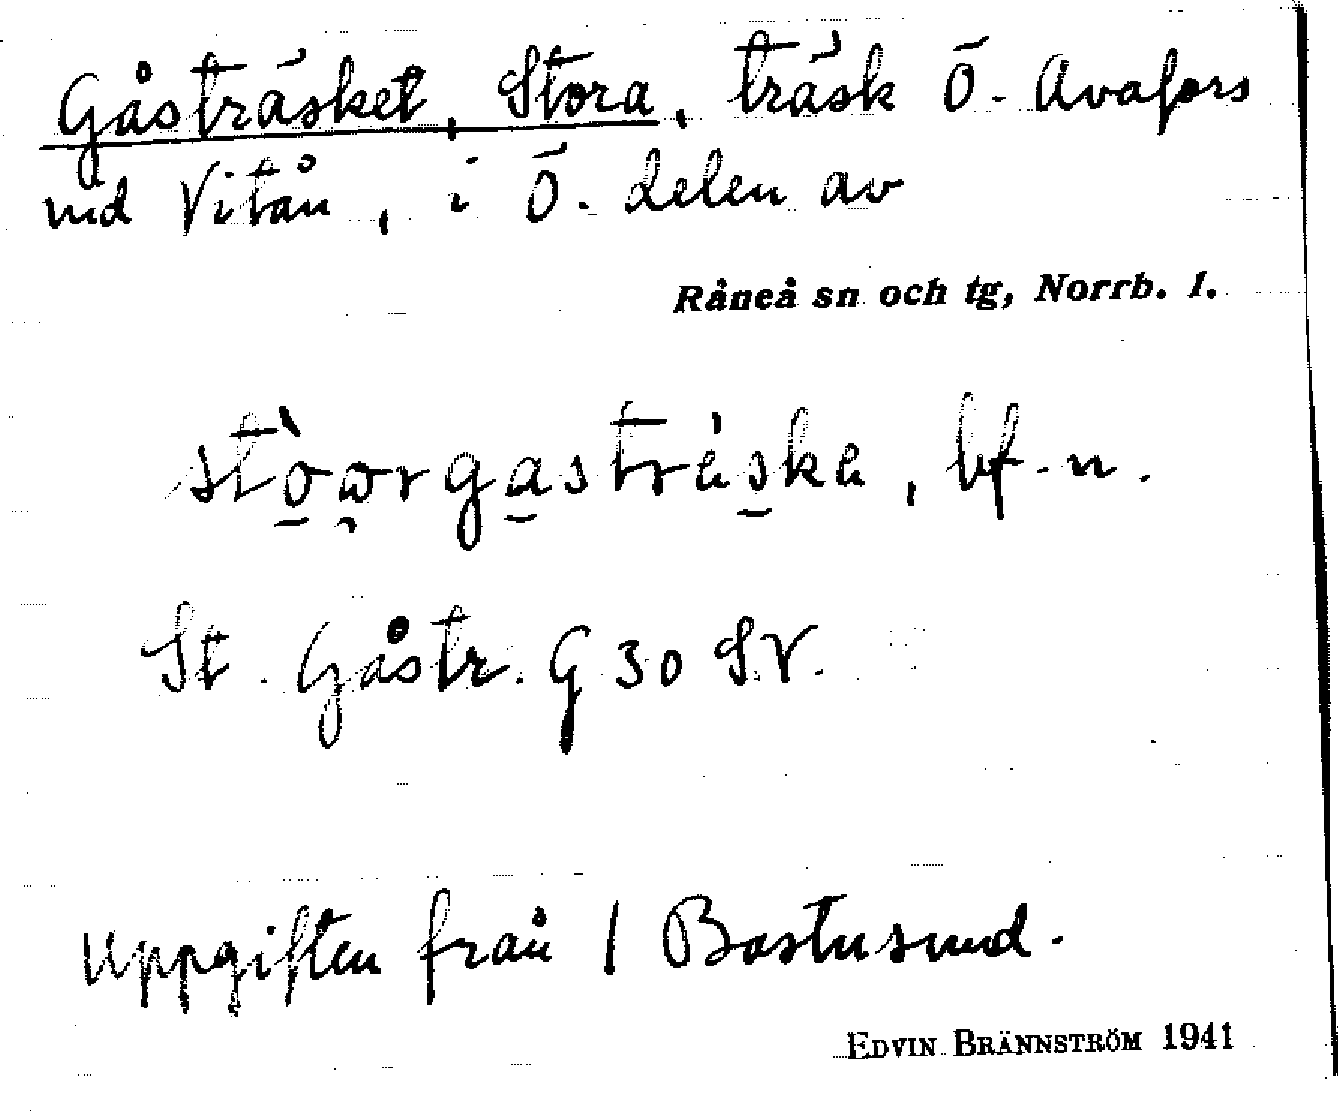 Gåsträsket, Stora, träsk Ö. Avafors
vid Vitån, i Ö. delen av
Råneå sn och tg, Norrb. l.
stòωrgastráska, bf. n.
St. Gåstr. G 30 SV.
Uppgiften från 1 Bastusund.
EDVIN BRÄNNSTRÖM 1941